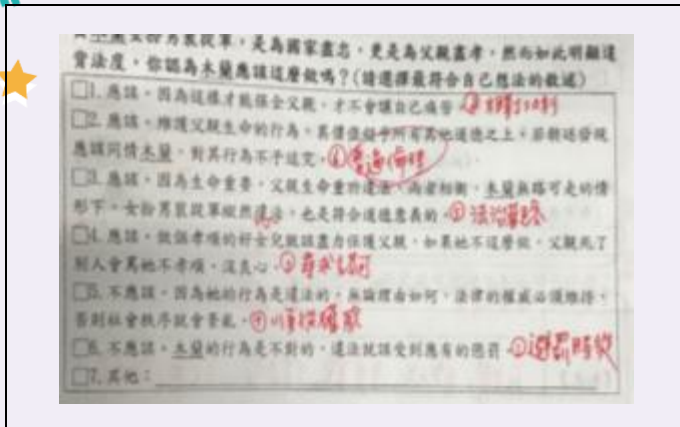 木蘭女扮男裝從軍，是為國家盡忠，更是為父親盡孝，然而如此明顯違
背法度，你認為木蘭應該這麼做嗎？(請選擇最符合自己想法的敘述)
□1. 應該。因為這樣才能保全父親，才不會讓自己痛苦。
□2. 應該。維護父親生命的行為，其價值超乎所有其他道德之上，若朝廷發現
應該同情木蘭，對其行為不予追究。⑥普遍倫理
□3. 應該。因為生命重要，父親生命重於違法，兩者相衡，木蘭無路可走的情
形下，女扮男裝從軍縱然違法，也是符合道德意義的。⑤法治觀念
□4. 應該。做個孝順的好女兒就該盡力保護父親，如果她不這麼做，父親死了
別人會罵她不孝順、沒良心。③尋求認可
□5. 不應該。因為她的行為是違法的，無論理由如何，法律的權威必須維持，
否則社會秩序就會紊亂。④
□6. 不應該。木蘭的行為是不對的，違法就該受到應有的懲罰。①避罰服從
□7. 其他：